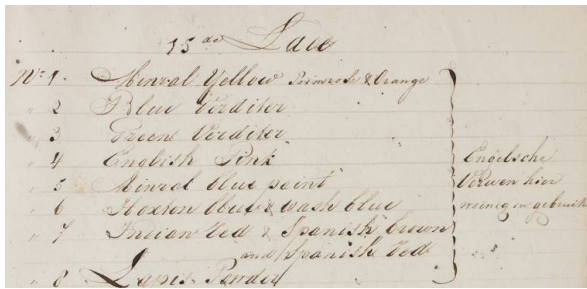 15 do Lade
No 1 Minral Yellow Primrose & Orange
" 2 Blue Verditer
" 3 Green Verditer
" 4 English Pink
" 5 Minral blue paint
" 6 Hoxton blue & wash blue
" 7 Indian Red & Spanish brown
and Spanish Red
" 8 Lapis Powder
Engelsche
Verwen hier
weinig in gebruik